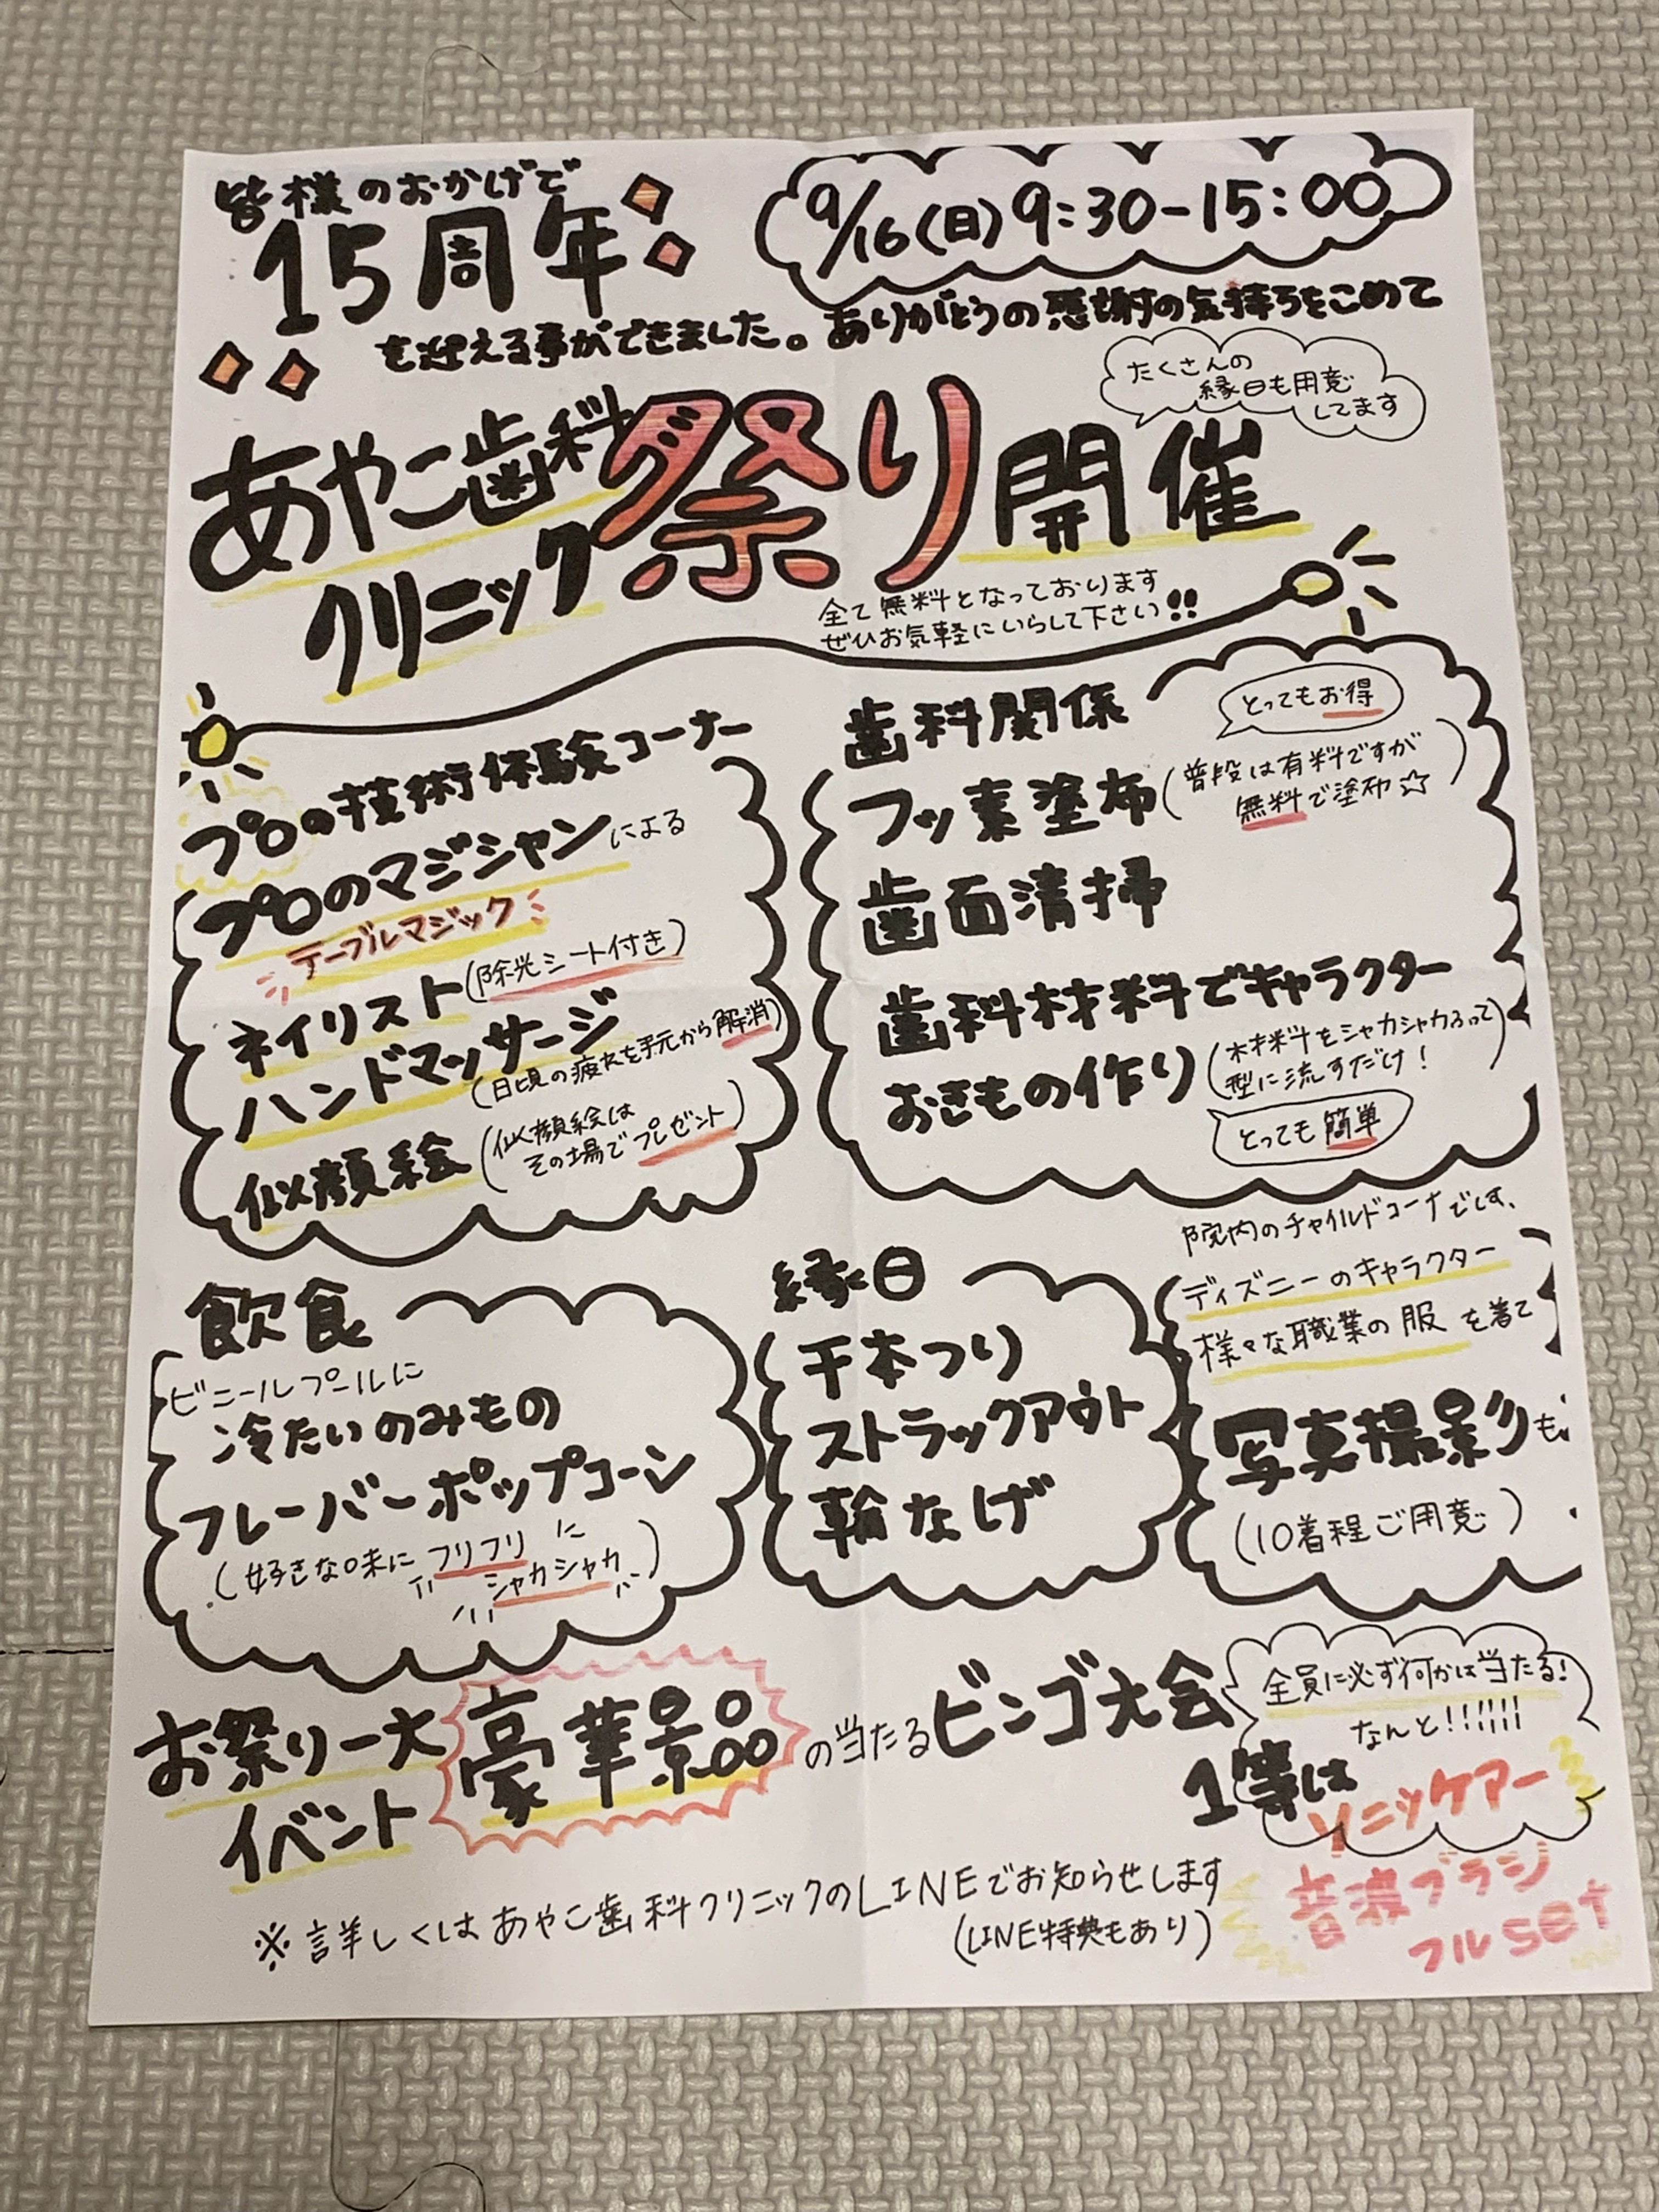 皆様のおかげで
15周年
9/16(日)9:30-15:00
を迎える事ができました。ありがとうの感謝の気持ちをこめて
たくさんの
縁日も用意
してます
あやこ歯科
クリニック
祭り開催
全て無料となっております
ぜひお気軽にいらして下さい!!
プロの技術体験コーナー
プロのマジシャンによる
テーブルマジック
ネイリスト(除光シート付き)
ハンドマッサージ
(日頃の疲れを手元から解消)
似顔絵(似顔絵は
その場でプレゼント)
歯科関係
とってもお得
フッ素塗布(普段は有料ですが
無料で塗布☆)
歯面清掃
歯科材料でキャラクター
おきもの作り(材料をシャカシャカふって
型に流すだけ!)
とっても簡単
飲食
ビニールプールに
冷たいのみもの
フレーバーポップコーン
(好きな味にフリフリに
シャカシャカ)
縁日
千本つり
ストラックアウト
輪なげ
院内のチャイルドコーナでは、
ディズニーのキャラクター
様々な職業の服を着て
写真撮影も
(10着程ご用意)
お祭り一大
イベント
豪華景品の当たるビンゴ大会
全員に必ず何かは当たる!
なんと!!!!!!
1等は
ソニッケアー
音波ブラシ
フルset
※詳しくはあやこ歯科クリニックのLINEでお知らせします
(LINE特典もあり)